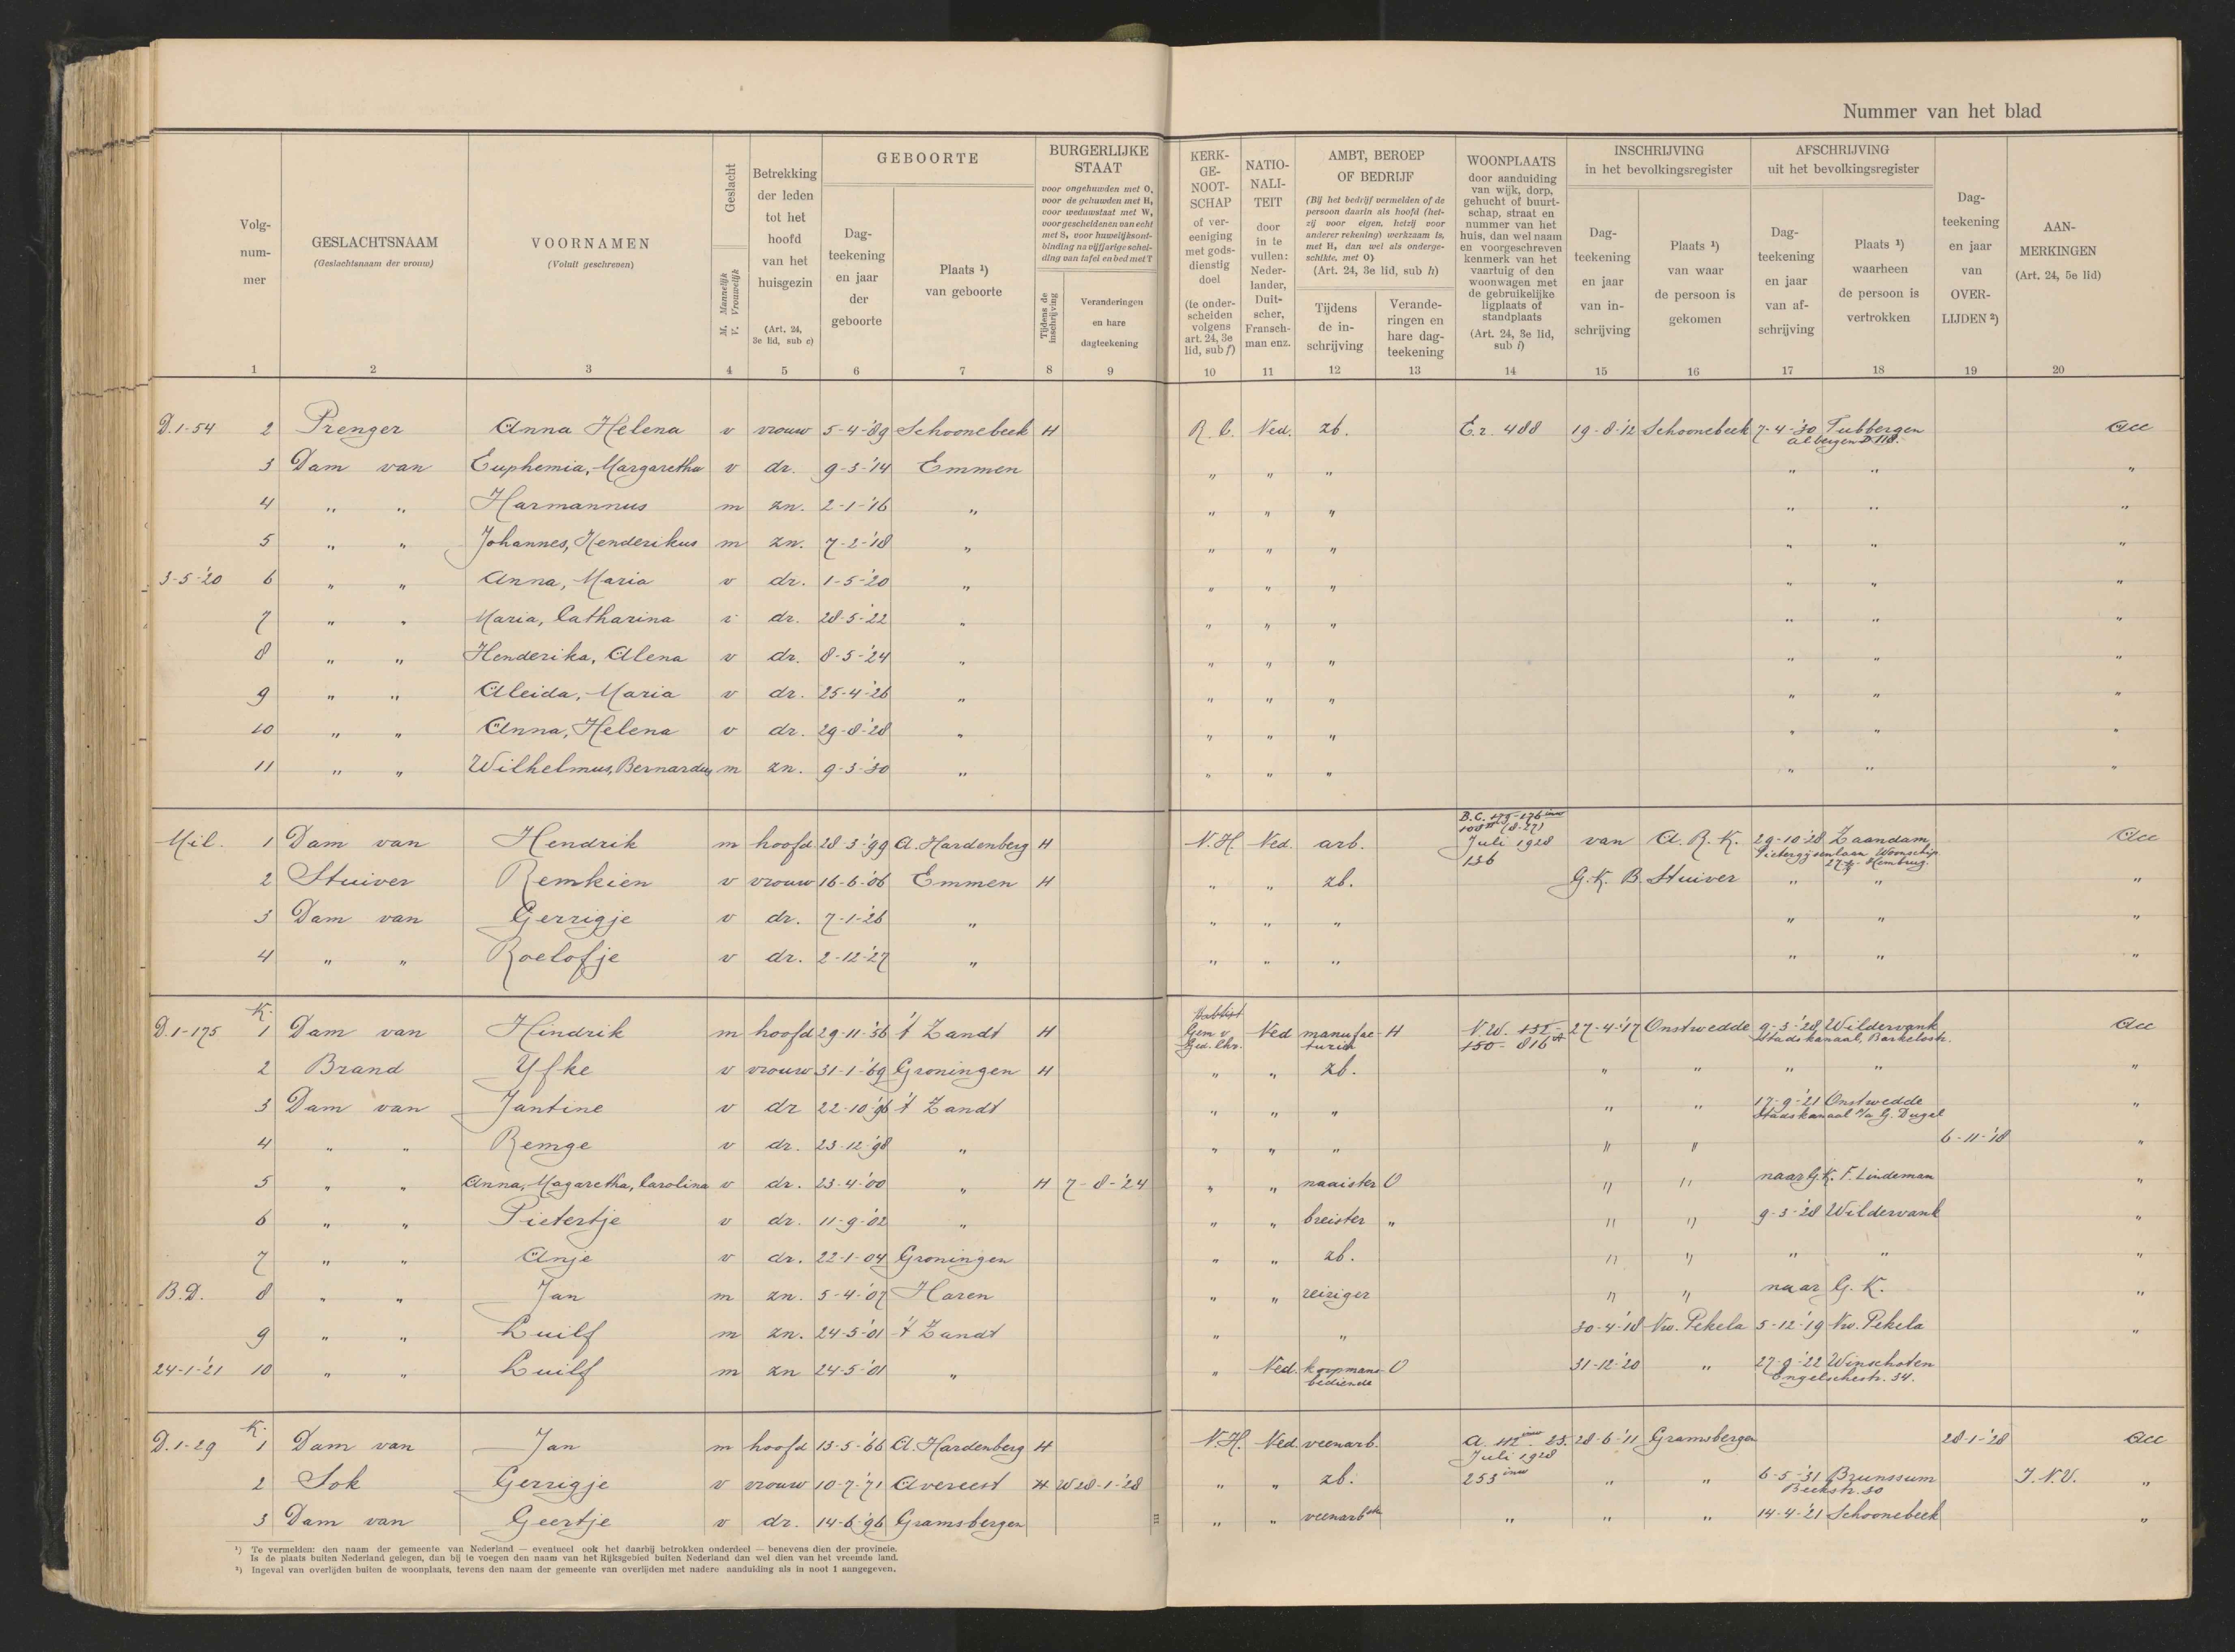 Nummer van het blad
Volg-num-mer 1
GESLACHTSNAAM (Geslachtsnaam der vrouw) 2
VOORNAMEN (Voluit geschreven) 3
Geslacht M. Mannelijk V. Vrouwelijk 4
Betrekking der leden tot het hoofd van het huisgezin (Art. 24, 3e lid, sub c) 5
GEBOORTE
Dag-teekening en jaar der geboorte 6
Plaats ¹) van geboorte 7
BURGERLIJKE STAAT
voor ongehuwden met O, voor de gehuwden met H, voor weduwstaat met W, voor gescheidenen van echt met S, voor huwelijksont-binding na vijfjarige schei-ding van tafel en bed met T
Tijdens de inschrijving 8
Veranderingen en hare dagteekening 9
KERK-GE-NOOT-SCHAP of ver-eeniging met gods-dienstig doel (te onder-scheiden volgens art. 24, 3e lid, sub f) 10
NATIO-NALI-TEIT door in te vullen: Neder-lander, Duit-scher, Fransch-man enz. 11
AMBT, BEROEP OF BEDRIJF
(Bij het bedrijf vermelden of de persoon daarin als hoofd (het-zij voor eigen, hetzij voor anderer rekening) werkzaam is, met H, dan wel als onderge-schikte, met O) (Art. 24, 3e lid, sub h)
Tijdens de in-schrijving 12
Verande-ringen en hare dag-teekening 13
WOONPLAATS door aanduiding van wijk, dorp, gehucht of buurt-schap, straat en nummer van het huis, dan wel naam en voorgeschreven kenmerk van het vaartuig of den woonwagen met de gebruikelijke ligplaats of standplaats (Art. 24, 3e lid, sub i) 14
INSCHRIJVING in het bevolkingsregister
Dag-teekening en jaar van in-schrijving 15
Plaats ¹) van waar de persoon is gekomen 16
AFSCHRIJVING uit het bevolkingsregister
Dag-teekening en jaar van af-schrijving 17
Plaats ¹) waarheen de persoon is vertrokken 18
Dag-teekening en jaar van OVER-LIJDEN ²) 19
AAN-MERKINGEN (Art. 24, 5e lid) 20
D. 1-54 2 Prenger Anna Helena v vrouw 5-4-'89 Schoonebeek H R.C. Ned. zb. E.r. 488 19-8-'12 Schoonebeek 7-4-'30 Tubbergen acc
Albergen D 118.
3 Dam van Euphemia, Margaretha v dr. 9-3-'14 Emmen " " " " " "
4 " " Harmannus m zn. 2-1-'16 " " " " " " "
5 " " Johannes, Henderikus m zn. 7-2-'18 " " " " " " "
3-5-'20 6 " " Anna, Maria v dr. 1-5-'20 " " " " " " "
7 " " Maria, Catharina v dr. 28-5-'22 " " " " " " "
8 " " Henderika, Alena v dr. 8-5-'24 " " " " " " "
9 " " Aleida, Maria v dr. 25-4-'26 " " " " " " "
10 " " Anna, Helena v dr. 29-8-'28 " " " " " " "
11 " " Wilhelmus, Bernardus m zn. 9-3-'30 " " " " " " "
B.C. 175-176 inw
108 (8-27)
Mil. 1 Dam van Hendrik m hoofd 28-3-'99 A. Hardenberg H N.H. Ned. arb. Juli 1928 van A.R.K. 29-10-'28 Zaandam, acc
136 Woonschip
27 Hembrug.
2 Stuiver Remkien v vrouw 16-6-'06 Emmen H " " zb. G.K. B. Stuiver " " "
3 Dam van Gerrigje v dr. 7-1-'26 " " " " " " "
4 " " Roelofje v dr. 2-12-'27 " " " " " " "
K. Babtist
D. 1-175 1 Dam van Hindrik m hoofd 29-11-'56 't Zandt H Gem v. Ned manufac- H N.W. 152- 27-4-'17 Onstwedde 9-3-'28 Wildervank acc
Ged. Chr. turier 150- 816 A Stadskanaal, Barkelostr.
2 Brand Yfke v vrouw 31-1-'69 Groningen H " " zb. " " " " "
3 Dam van Jantine v dr 22-10-'96 't Zandt " " " " " 17-9-'21 Onstwedde "
Stadskanaal p/a G. Dugel
4 " " Remge v dr. 23-12-'98 " " " " " " 6-11-'18 "
5 " " Anna, Magaretha, Carolina v dr. 23-4-'00 " H 7-8-'24 " " naaister O " " naar G.K. F. Lindeman "
6 " " Pietertje v dr. 11-9-'02 " " " breister " " " 9-3-'28 Wildervank "
7 " " Anje v dr. 22-1-04 Groningen " " zb. " " " " "
B.D. 8 " " Jan m zn. 5-4-'07 Haren " " reiziger " " naar G.K. "
9 " " Luilf m zn. 24-5-'01 't Zandt " " 30-4-'18 Nw. Pekela 5-12-'19 Nw. Pekela "
24-1-'21 10 " " Luilf m zn 24-5-'01 " " Ned. koopmans- O 31-12-'20 " 27-9-'22 Winschoten
bediende Engelschestr. 34.
K.
D. 1-29 1 Dam van Jan m hoofd 13-5-'66 A. Hardenberg H N.H. Ned. veenarb. A. 112 inw. 23. 28-6-'11 Gramsbergen 28-1-'28 acc
Juli 1928
2 Sok Gerrigje v vrouw 10-7-'71 Avereest H W 28-1-'28 " " zb. 253 inw " " 6-5-'31 Brunssum J.N.V. "
Beekstr. 30
3 Dam van Geertje v dr. 14-6-'96 Gramsbergen " " veenarbstr " " " 14-4-'21 Schoonebeek "
¹) Te vermelden: den naam der gemeente van Nederland — eventueel ook het daarbij betrokken onderdeel — benevens dien der provincie.
Is de plaats buiten Nederland gelegen, dan bij te voegen den naam van het Rijksgebied buiten Nederland dan wel dien van het vreemde land.
²) Ingeval van overlijden buiten de woonplaats, tevens den naam der gemeente van overlijden met nadere aanduiding als in noot 1 aangegeven.
III